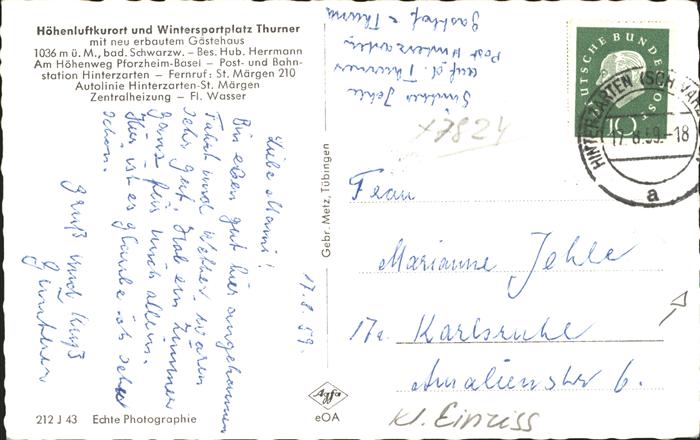 Höhenluftkurort und Wintersportplatz Thurner
mit neu erbautem Gästehaus
1036 m ü. M., bad. Schwarzw. – Bes. Hub. Herrmann
Am Höhenweg Pforzheim-Basel – Post- und Bahn-
station Hinterzarten – Fernruf: St. Märgen 210
Autolinie Hinterzarten-St. Märgen
Zentralheizung – Fl. Wasser
17.8.59.
Liebe Mammi!
Bin eben gut hier angekommen
Fahrt und Wetter waren
sehr gut. Hab ein Zimmer
ganz für mich allein.
Hier ist es glaube ich sehr
schön.
Gruß und Kuß
Günther
Günther Jehle
auf d. Thurner
Post Hinterzarten
Gasthof z. Thurner
x7824
DEUTSCHE BUNDESPOST
10
HINTERZARTEN (SCHWARZW)
17.8.59.-18
a
Frau
Marianne Jehle
17a. Karlsruhe
Amalienstr 6.
Gebr. Metz, Tübingen
212 J 43 Echte Photographie
Agfa
eOA
kl. Einriss